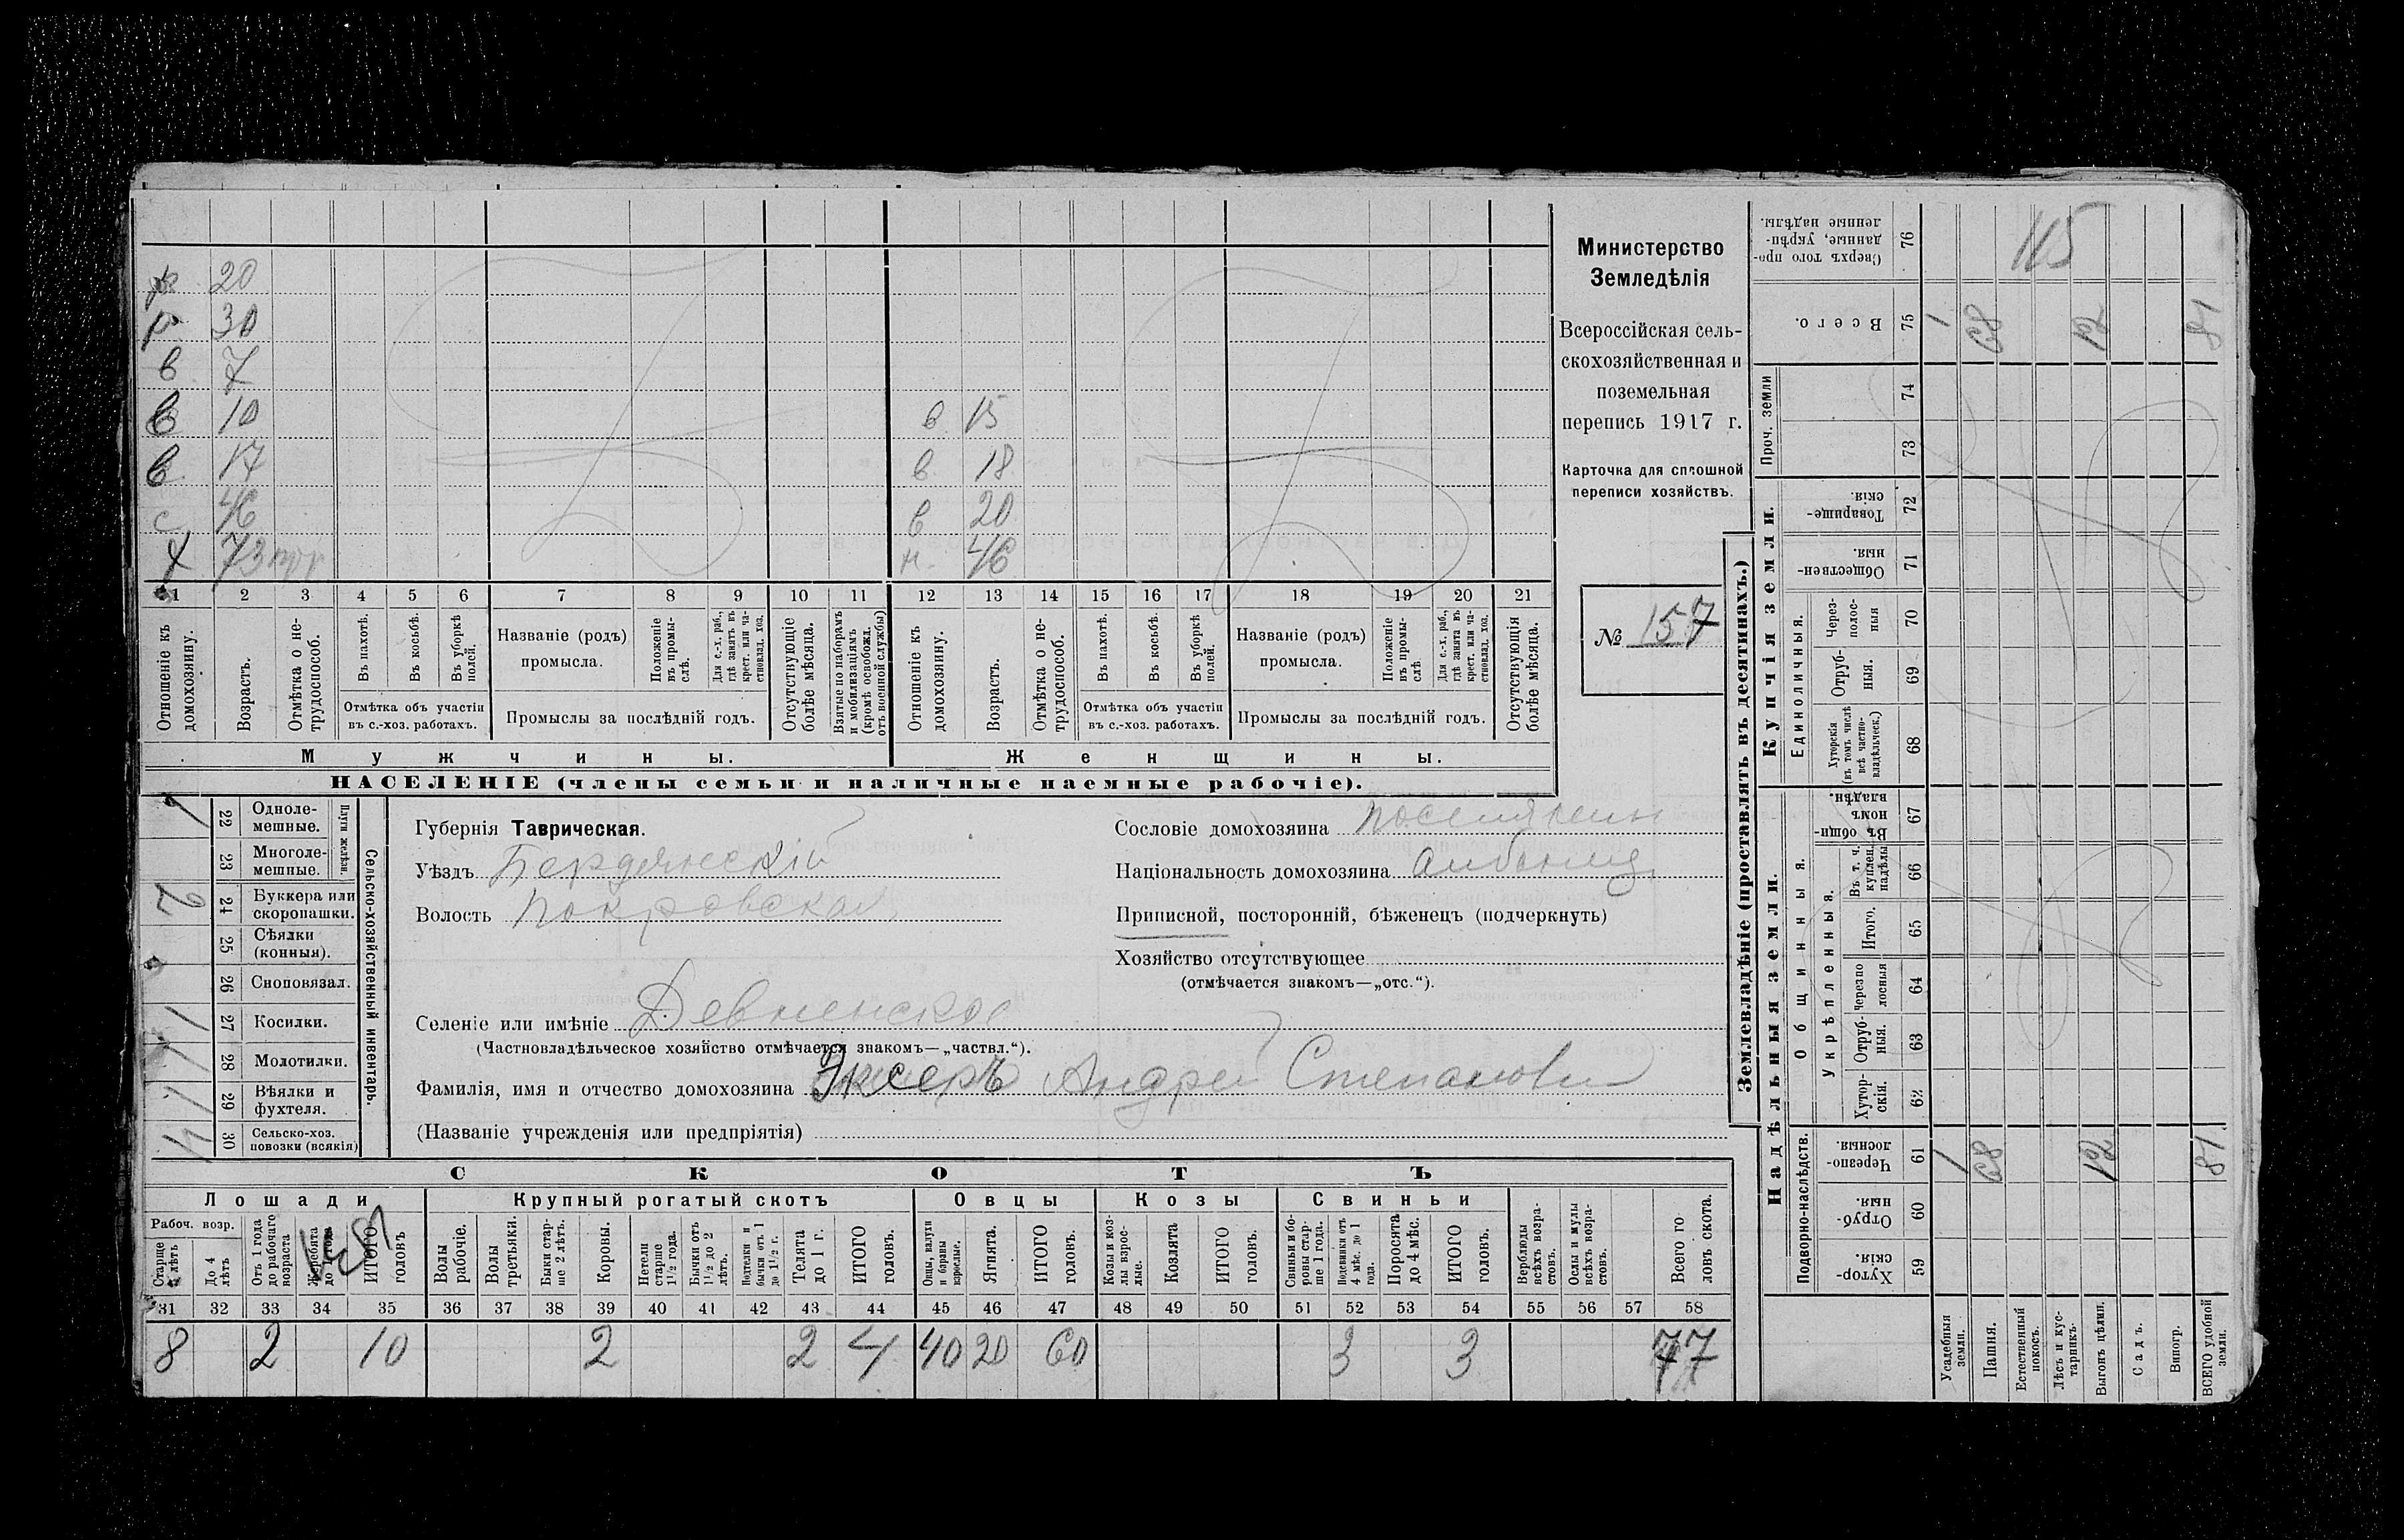 р 20
р 30
в 7
в 10 в 15
в 17 в. 18
с 46 в 20
х 73 н. 46
1 2 3 4 5 6 7 8 9 10 11 12 13 14 15 16 17 18 19 20 21
Отношеніе къ домохозяину.
Возрастъ.
Отмѣтка о нетрудоспособ.
Въ пахотѣ.
Въ косьбѣ.
Въ уборкѣ полей.
Отмѣтка объ участіи
въ с.-хоз. работахъ.
Названіе (родъ)
промысла.
Положеніе въ промыслѣ.
Для с.-х. раб., гдѣ занятъ въ крест. или частновлад. хоз.
Промыслы за послѣдній годъ.
Отсутствующіе болѣе мѣсяца.
Взятые по наборамъ и мобилизаціямъ (кромѣ освобожд. отъ военной службы)
Отношеніе къ домохозяину.
Возрастъ.
Отмѣтка о нетрудоспособ.
Въ пахотѣ.
Въ косьбѣ.
Въ уборкѣ полей.
Отмѣтка объ участіи
въ с.-хоз. работахъ.
Названіе (родъ)
промысла.
Положеніе въ промыслѣ
Для с.-х. раб., гдѣ занята въ крест. или частновлад. хоз.
Промыслы за послѣдній годъ.
Отсутствующія болѣе мѣсяца.
Мужчины. Женщины.
НАСЕЛЕНІЕ (члены семьи и наличные наемные рабочіе).
Министерство
Земледѣлія
Всероссійская сель-
скохозяйственная и
поземельная
перепись 1917 г.
Карточка для сплошной
переписи хозяйствъ.
№ 157
1 22 Одноле-
мешные.
23 Многоле-
мешные.
Плуги желѣзн.
2 24 Буккера или
скоропашки.
25 Сѣялки
(конныя).
26 Сноповязал.
1 27 Косилки.
1 28 Молотилки.
1 29 Вѣялки и
фухтеля.
30 Сельско-хоз.
повозки (всякія)
Сельско-хозяйственный инвентарь.
Губернія Таврическая.
Уѣздъ Бердянскій
Волость Покровская
Селеніе или имѣніе Девненское
(Частновладѣльческое хозяйство отмѣчается знакомъ—„частвл.“).
Фамилія, имя и отчество домохозяина Эксеръ Андрей Степанови
(Названіе учрежденія или предпріятія)
Сословіе домохозяина поселянин
Національность домохозяина албанец
Приписной, посторонній, бѣженецъ (подчеркнуть)
Хозяйство отсутствующее
(отмѣчается знакомъ—„отс.“).
СКОТЪ
Лошади Крупный рогатый скотъ Овцы Козы Свиньи
Рабоч. возр.
Старше 4 лѣтъ
До 4 лѣтъ
Отъ 1 года до рабочаго возраста
Жеребята до 1 года
ИТОГО головъ
Волы рабочіе.
Волы третьяки.
Быки старше 2 лѣтъ.
Коровы.
Нетели старше 1½ года.
Бычки отъ 1½ до 2 лѣтъ.
Подтелки и бычки отъ 1 до 1½ г.
Телята до 1 г.
ИТОГО головъ.
Овцы, валухи и бараны взрослые.
Ягнята.
ИТОГО головъ.
Козы и козлы взрослые.
Козлята
ИТОГО головъ.
Свиньи и боровы старше 1 года.
Подсвинки отъ 4 мѣс. до 1 года.
Поросята до 4 мѣс.
ИТОГО головъ.
Верблюды всѣхъ возрастовъ.
Ослы и мулы всѣхъ возрастовъ.
Всего головъ скота.
31 32 33 34 35 36 37 38 39 40 41 42 43 44 45 46 47 48 49 50 51 52 53 54 55 56 57 58
8 2 10 2 2 4 40 20 60 3 3 77
Землевладѣніе (проставлять въ десятинахъ.)
115
Сверхъ того проданные, укрѣпленные надѣлы. 76
Всего. 75 1 68 12 81
Проч. земли 74
73
Купчія земли.
Товарищескія. 72
Общественныя. 71
Единоличныя.
Черезполосныя 70
Отрубныя. 69
Хуторскія (въ томъ числѣ всѣ частновладѣльческ.) 68
Надѣльныя земли.
Общинныя.
Въ общинномъ владѣн. 67
Укрѣпленныя.
Въ т. ч. куплен. надѣлы 66
Итого. 65
Черезполосныя 64
Отрубныя. 63
Хуторскія. 62
Подворно-наслѣдств.
Черезполосныя. 61 1 68 12 81
Отрубныя. 60
Хуторскія. 59
Усадебныя земли.
Пашня.
Естественный покосъ.
Лѣсъ и кустарникъ.
Выгонъ цѣлин.
Садъ.
Виногр.
ВСЕГО удобной земли.